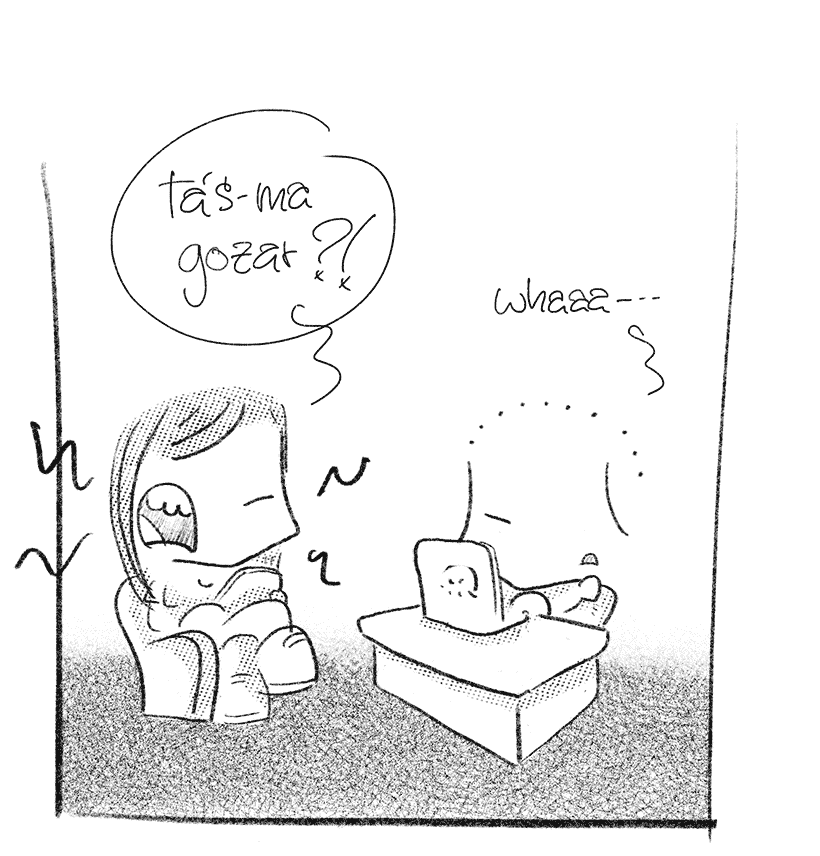 tás-ma
gozar?!
whaaa---